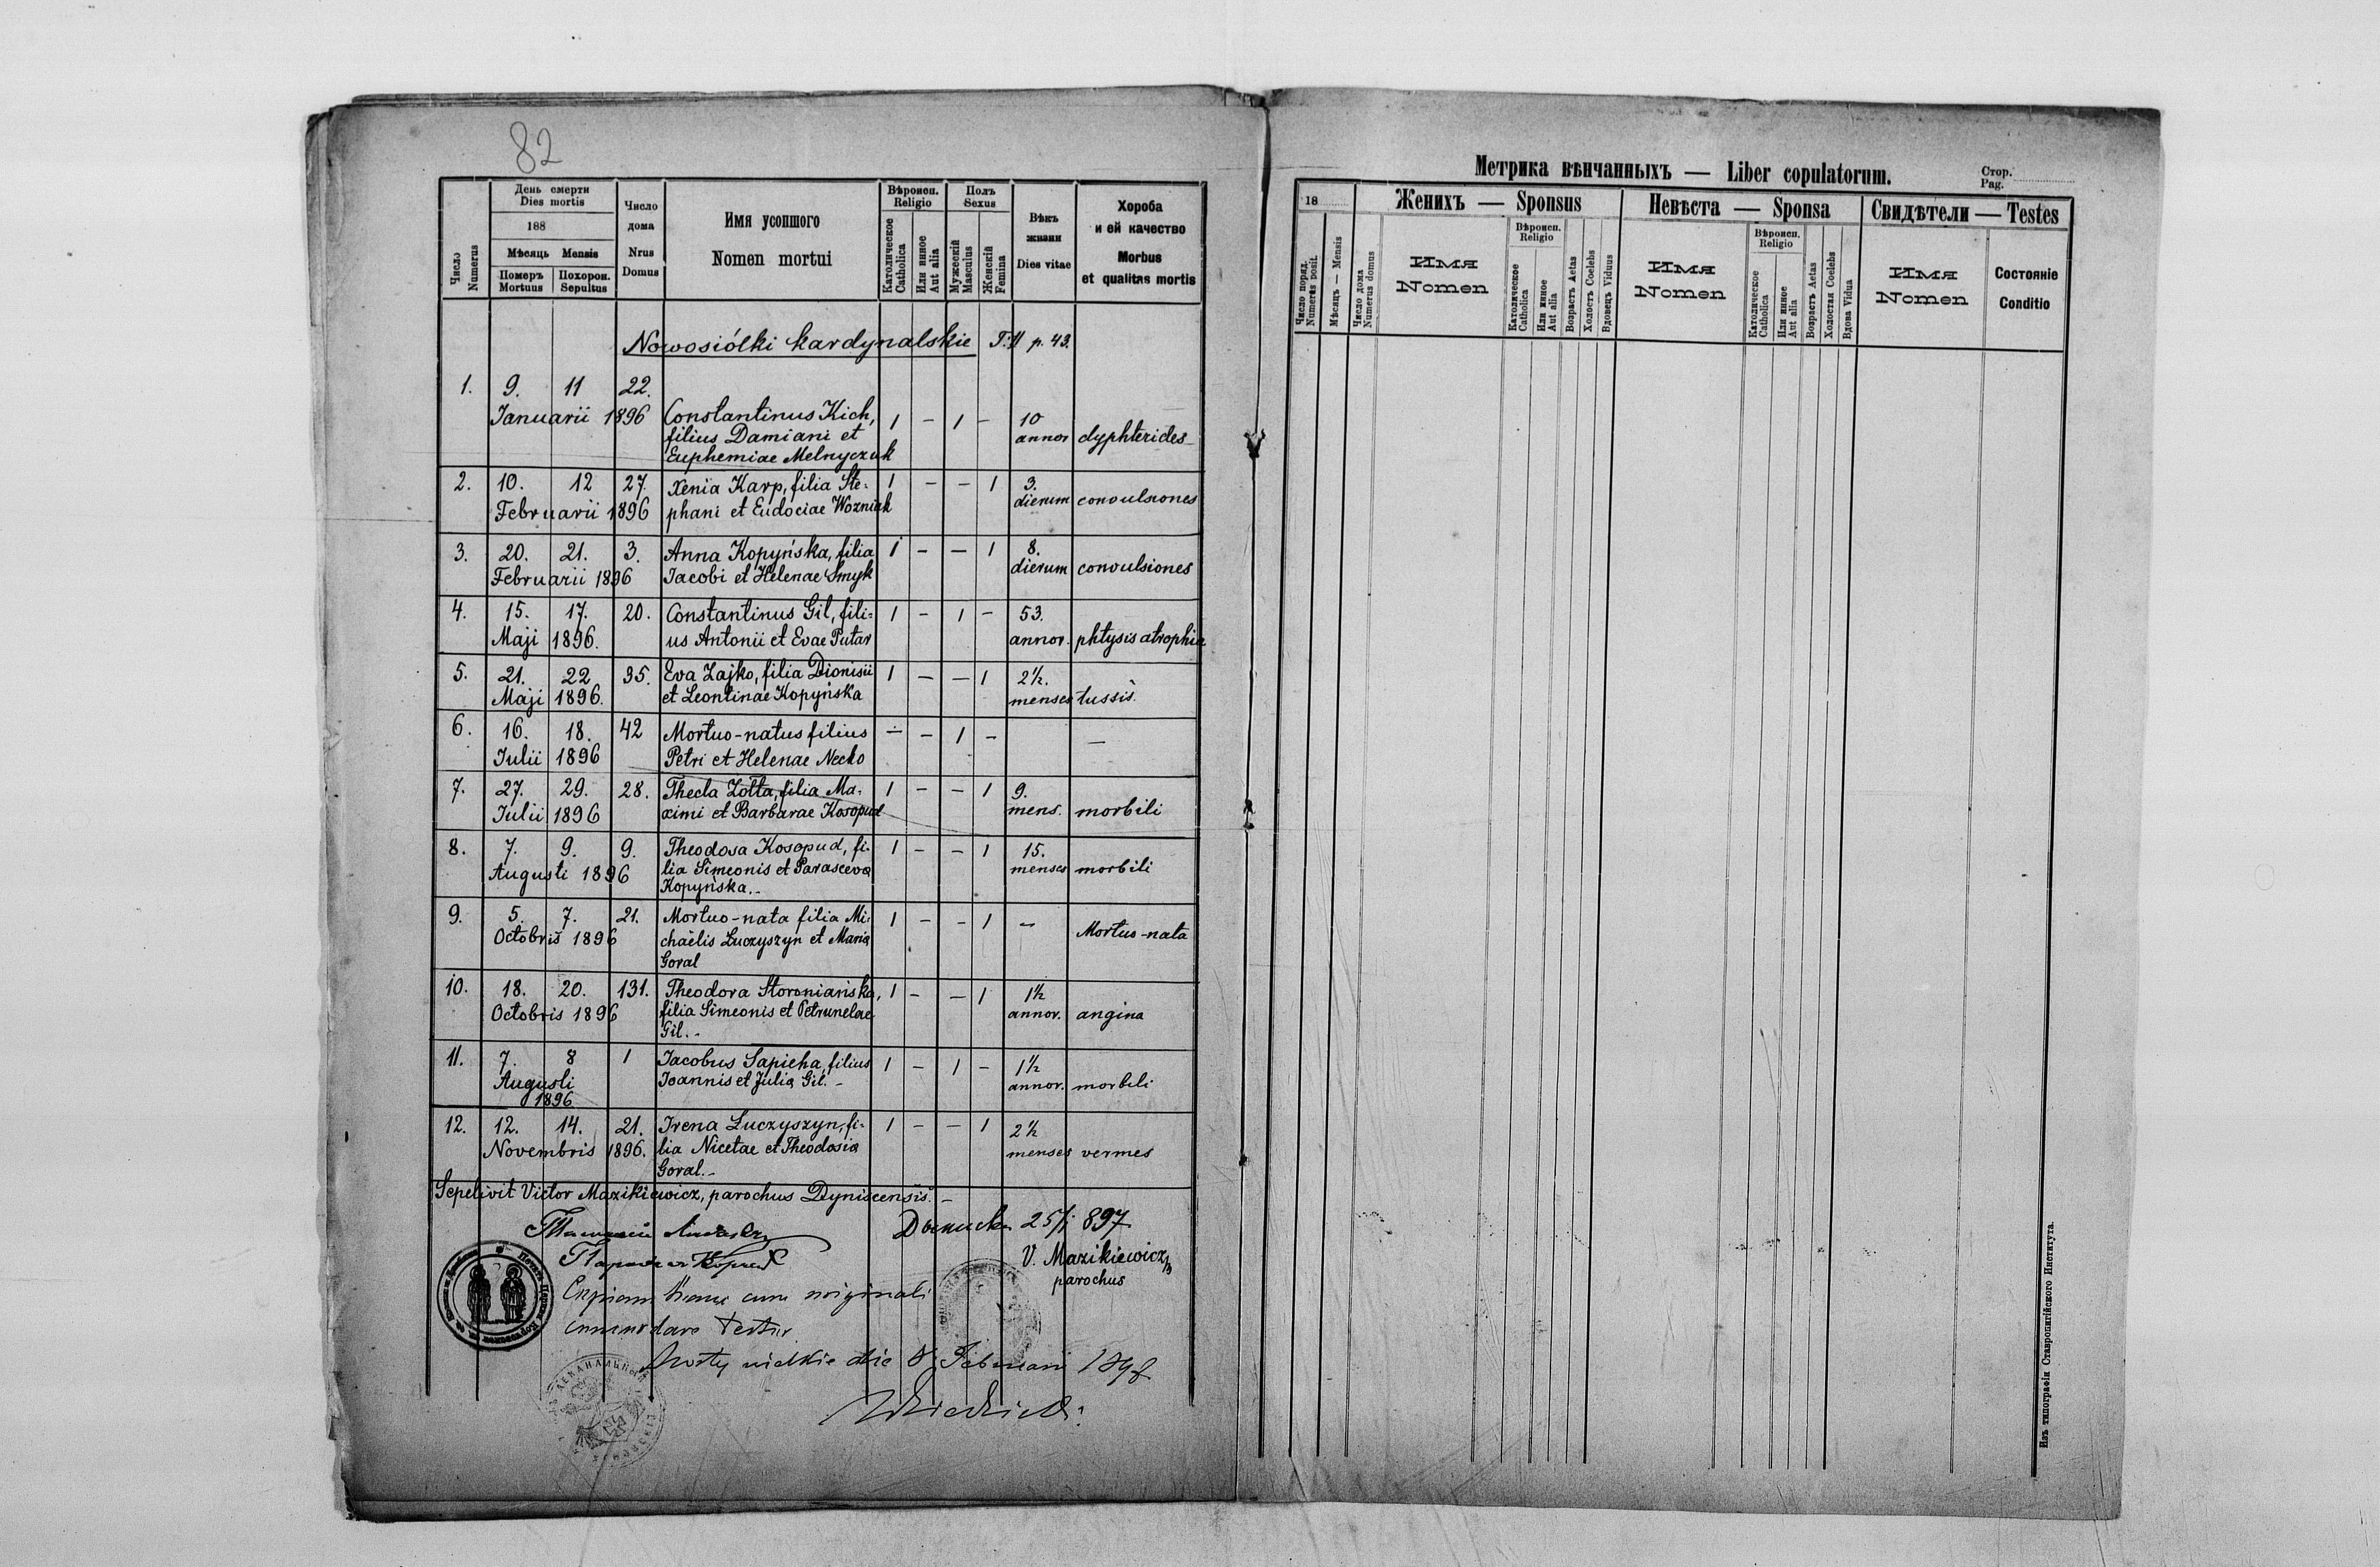 82
День смерти
Dies mortis
188
Мѣсяць Mensis
Померъ Похорон.
Mortuus Sepultus
Число
Numerus
Число
дома
Nrus
Domus
Имя усопшого
Nomen mortui
Вѣроисп.
Religio
Католическое
Catholica
Или инное
Aut alia
Полъ
Sexus
Мужескій
Masculus
Женскій
Femina
Вѣкъ
жизни
Dies vitae
Хороба
и ей качество
Morbus
et qualitas mortis
Nowosiółki kardynalskie T. II p. 43.
1. 9. 11 22.
Ianuarii 1896 Constantinus Kich, 1 – 1 – 10
filius Damiani et annor dyphterides
Euphemiae Melnyczuk
2. 10. 12 27. Xenia Karp, filia Ste- 1 – – 1 3.
Februarii 1896 phani et Eudociae Wozniak dierum convulsiones
3. 20. 21. 3. Anna Kopyńska, filia 1 – – 1 8.
Februarii 1896 Iacobi et Helenae Smyk dierum convulsiones
4. 15. 17. 20. Constantinus Gil, fili- 1 – 1 – 53.
Maji 1896. us Antonii et Evae Putar annor. phtysis atrophia
5. 21. 22 35. Eva Zajko, filia Dionisii 1 – – 1 2½.
Maji 1896. et Leontinae Kopyńska menses tussis.
6. 16. 18. 42 Mortuo-natus filius – – 1 –
Iulii 1896 Petri et Helenae Necko –
7. 27. 29. 28. Thecla Zołta, filia Ma- 1 – – 1 9.
Iulii 1896 ximi et Barbarae Kosopud mens. morbili
8. 7. 9. 9. Theodosa Kosopud, fi- 1 – – 1 15.
Augusti 1896 lia Simeonis et Parasceva menses morbili
Kopyńska.-
9. 5. 7. 21. Mortuo-nata filia Mi- 1 – – 1 –
Octobris 1896 chaëlis Łuczyszyn et Maria Mortuo-nata
Goral
10. 18. 20. 131. Theodora Storoniańska, 1 – – 1 1½
Octobris 1896 filia Simeonis et Petrunelae annor. angina
Gil.-
11. 7. 8 1 Iacobus Sapieha, filius 1 – 1 – 1½
Augusti Ioannis et Julia Gil.- annor. morbili
1896
12. 12. 14. 21. Irena Łuczyszyn, fi- 1 – – 1 2½
Novembris 1896. lia Nicetae et Theodosia menses vermes
Goral.-
Sepelivit Victor Mazikiewicz, parochus Dyniscensis.-
25/1 897
V. Mazikiewicz
parochus
cum originali
die 8 Februarii
Метрика вѣнчанныхъ — Liber copulatorum.
Стор.
Pag.
18
Женихъ — Sponsus
Невѣста — Sponsa
Свидѣтели — Testes
Число поряд.
Numerus posit.
Мѣсяцъ — Mensis
Число дома
Numerus domus
Имя
Nomen
Вѣроисп.
Religio
Католическое
Catholica
Или инное
Aut alia
Возрастъ Aetas
Холостъ Coelebs
Вдовецъ Viduus
Имя
Nomen
Вѣроисп.
Religio
Католическое
Catholica
Или инное
Aut alia
Возрастъ Aetas
Холостая Coelebs
Вдова Vidua
Имя
Nomen
Состояніе
Conditio
Изъ типографіи Ставропигійского Института.